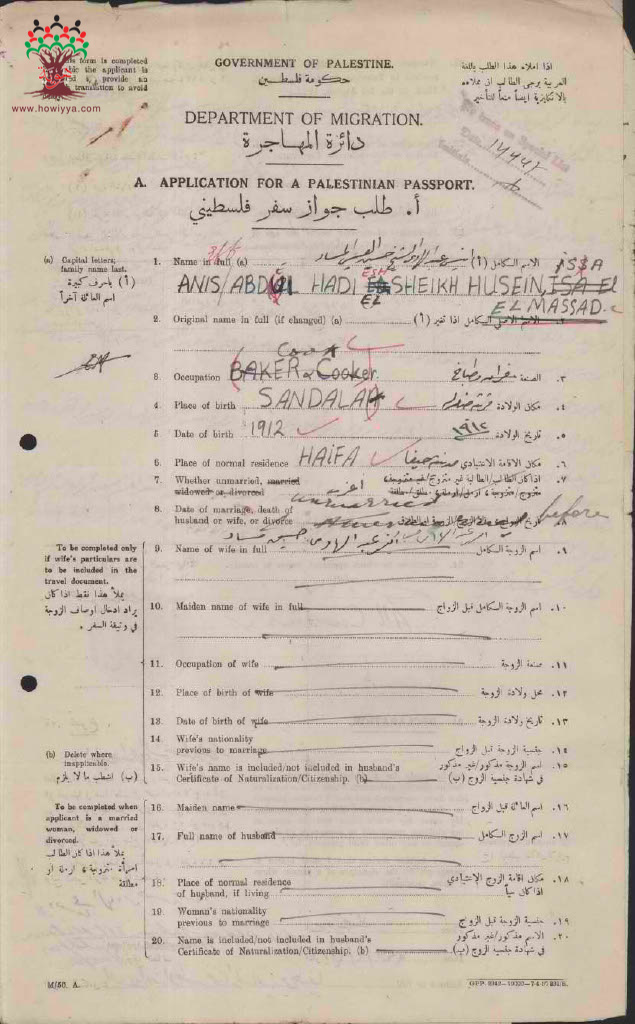 www.howiyya.com
form is completed
the applicant is
provide an
translation to avoid
GOVERNMENT OF PALESTINE.
حكومة فلسطين
اذا املاء هذا الطلب باللغة
العربية يرجى الطالب ان
بالانكليزية ايضاً منعاً للتأخير
DEPARTMENT OF MIGRATION.
دائرة المهاجرة
A. APPLICATION FOR A PALESTINIAN PASSPORT.
أ. طلب جواز سفر فلسطيني
(a) Capital letters; family name last.
(أ) بأحرف كبيرة
اسم العائلة آخراً
1. Name in full (a) الاسم الكامل (أ) ١.
ANIS/ABDUL HADI ESH SHEIKH HUSEIN ISSA El
EL MASSAD.
2. Original name in full (if changed) (a) الاسم الاصلي الكامل اذا تغير (أ)
Cook
3. Occupation BAKER & Cooker. الصنعة ٣.
4. Place of birth SANDALAH مكان الولادة ٤.
5. Date of birth 1912 ١٩١٢ تاريخ الولادة ٥.
6. Place of normal residence HAIFA مكان الاقامة الاعتيادي ٦.
7. Whether unmarried, married اعزب ٧.
widowed or, divorced unmarried
8. Date of marriage, death of before
husband or wife, or divorce ٨.
To be completed only
if wife's particulars are
to be included in the
travel document.
يملأ هذا فقط اذا كان
يراد ادخال اوصاف الزوجة
في وثيقة السفر.
9. Name of wife in full اسم الزوجة الكامل ٩.
10. Maiden name of wife in full اسم الزوجة الكامل قبل الزواج ١٠.
11. Occupation of wife صنعة الزوجة ١١.
12. Place of birth of wife محل ولادة الزوجة ١٢.
13. Date of birth of wife تاريخ ولادة الزوجة ١٣.
14. Wife's nationality
previous to marriage جنسية الزوجة قبل الزواج ١٤.
(b) Delete where inapplicable.
(ب) اشطب ما لا يلزم
15. Wife's name is included/not included in husband's اسم الزوجة مذكور/غير مذكور ١٥.
Certificate of Naturalization/Citizenship. (b) في شهادة جنسية الزوج (ب)
To be completed when
applicant is a married
woman, widowed or
divorced.
يملأ هذا اذا كان الطالب
امرأة متزوجة او ارملة او
مطلقة
16. Maiden name اسم العائلة قبل الزواج ١٦.
17. Full name of husband اسم الزوج الكامل ١٧.
18. Place of normal residence مكان اقامة الزوج الاعتيادي ١٨.
of husband, if living اذا كان حياً
19. Woman's nationality
previous to marriage جنسية الزوجة قبل الزواج ١٩.
20. Name is included/not included in husband's الاسم مذكور/غير مذكور ٢٠.
Certificate of Naturalization/Citizenship. (b) في شهادة جنسية الزوج (ب)
M/50. A.